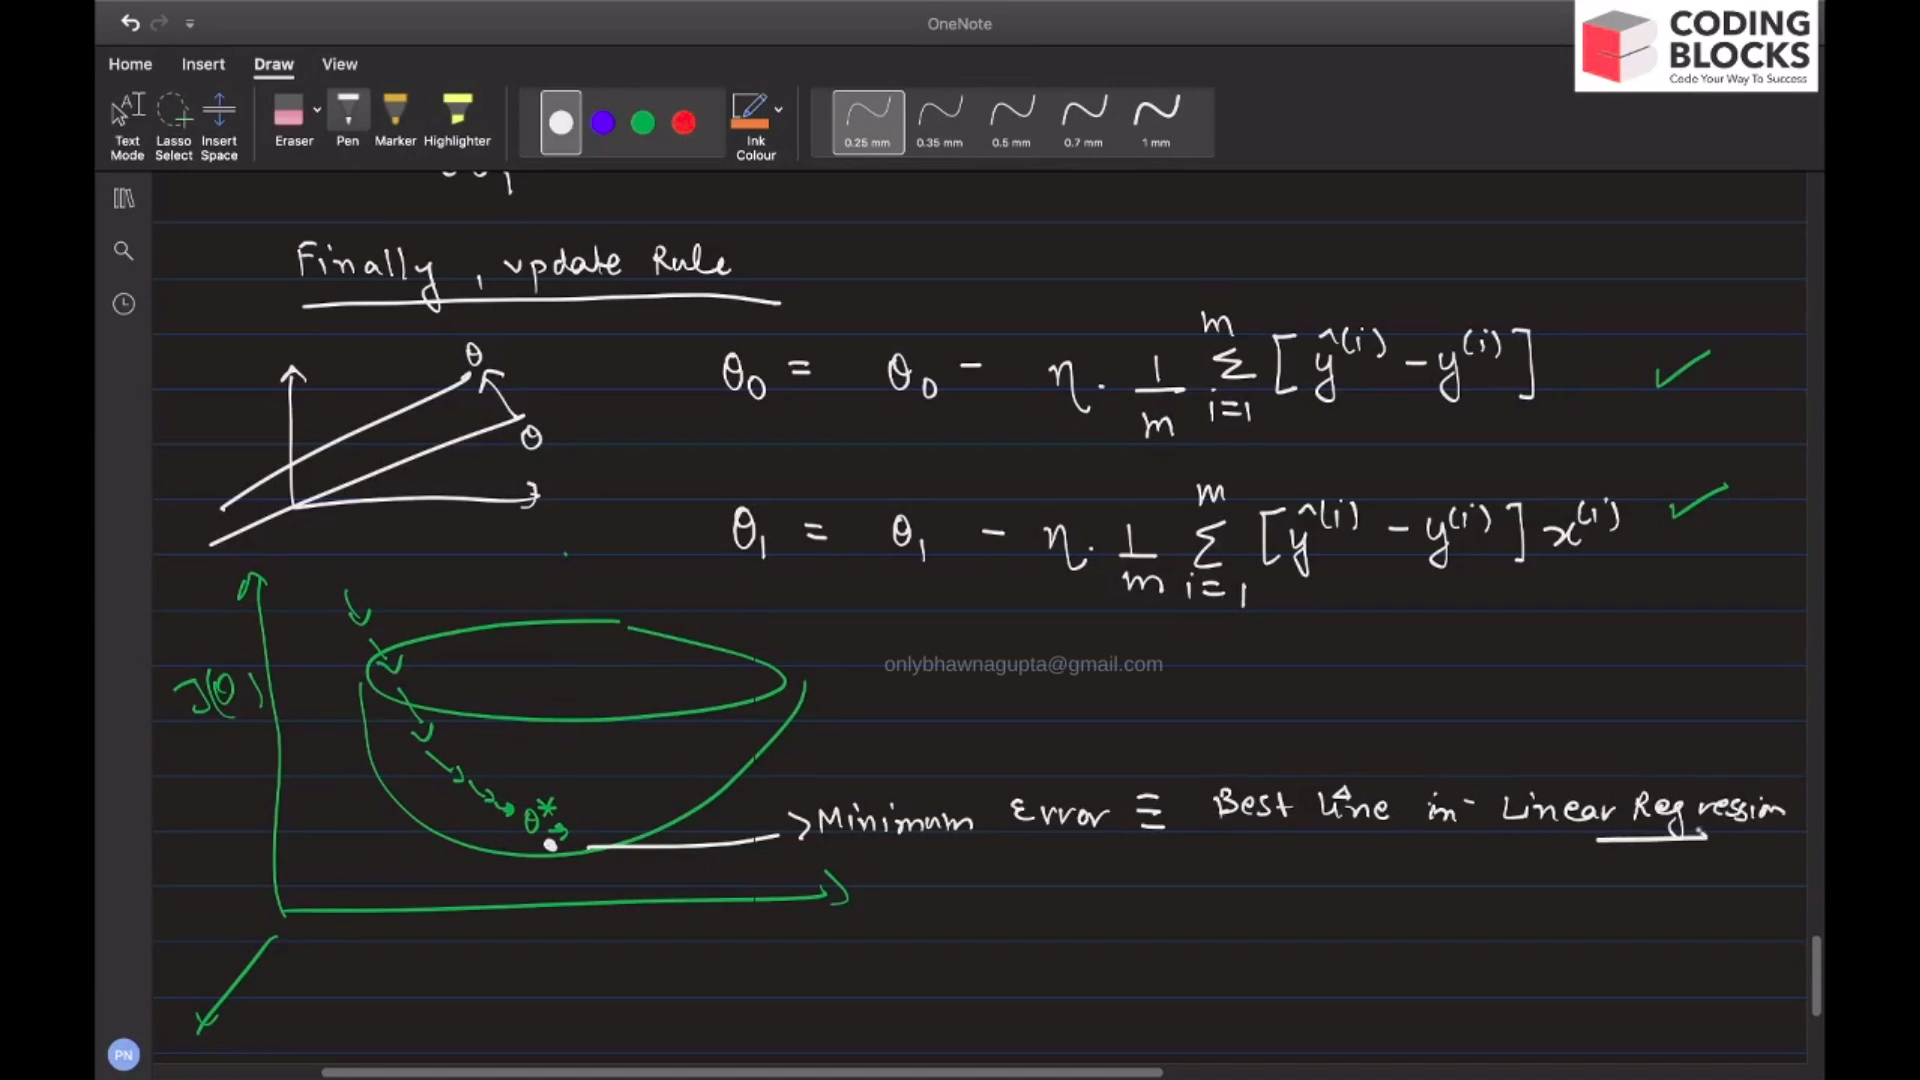 OneNote
CODING
BLOCKS
Code Your Way To Success
Home Insert Draw View
Text Mode
Lasso Select
Insert Space
Eraser
Pen
Marker
Highlighter
Ink Colour
0.25 mm
0.35 mm
0.5 mm
0.7 mm
1 mm
Finally, update Rule
θ
θ
θ₀ = θ₀ - η. 1/m Σ_{i=1}^{m} [ŷ⁽ⁱ⁾ - y⁽ⁱ⁾]
θ₁ = θ₁ - η. 1/m Σ_{i=1}^{m} [ŷ⁽ⁱ⁾ - y⁽ⁱ⁾] x⁽ⁱ⁾
onlybhawnagupta@gmail.com
J(θ)
θ*
Minimum Error ≡ Best Line in Linear Regression
PN